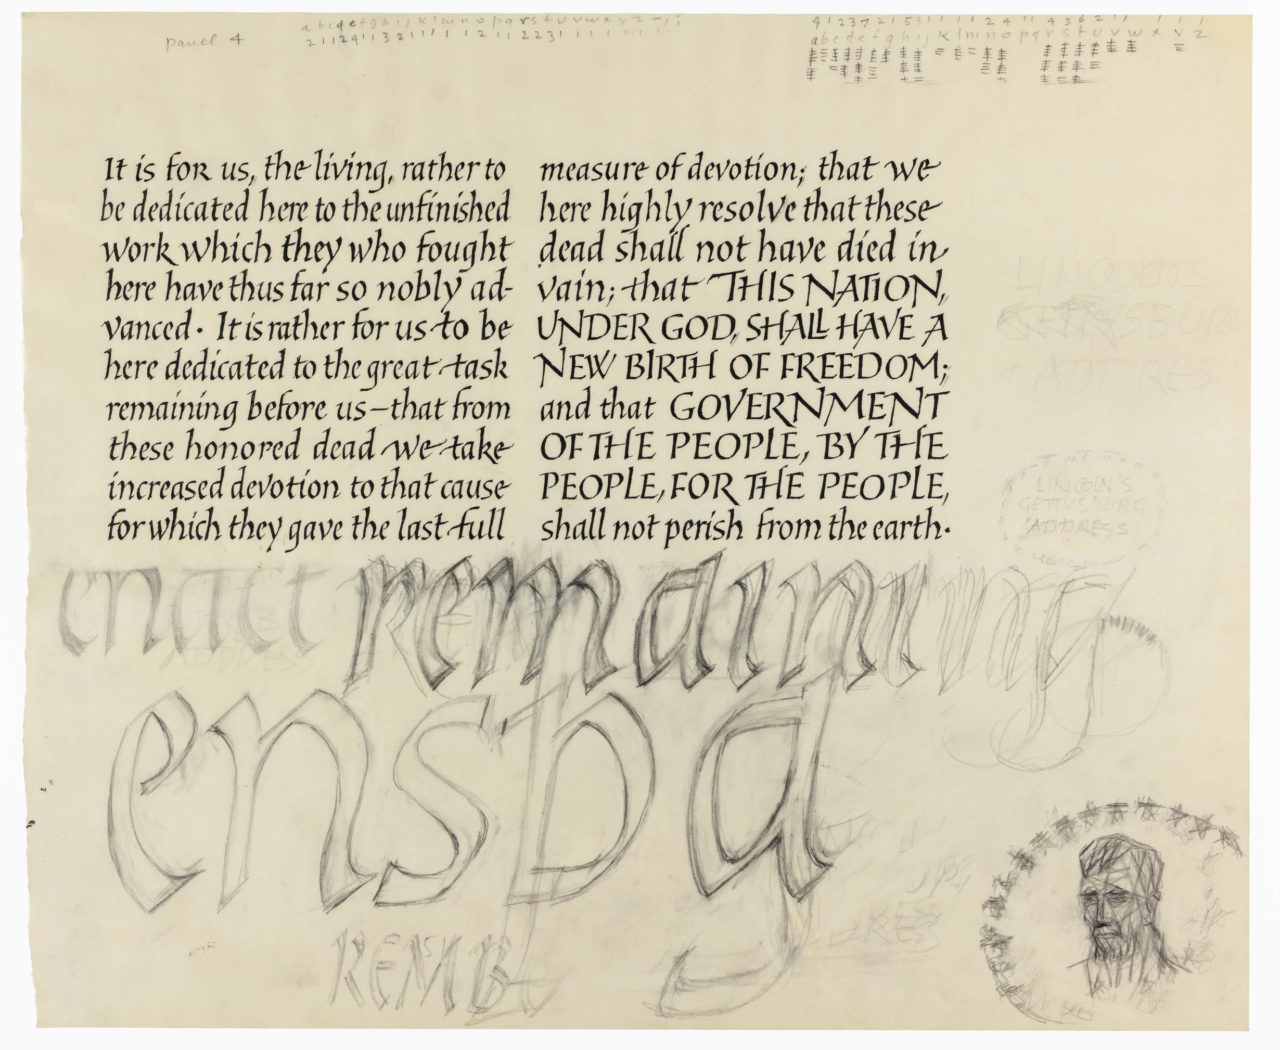 panel 4
a b c d e f g h i j k l m n o p q r s t u v w x y z
a b c d e f g h i j k l m n o p q r s t u v w x y z
It is for us, the living, rather to
be dedicated here to the unfinished
work which they who fought
here have thus far so nobly ad-
vanced. It is rather for us to be
here dedicated to the great task
remaining before us—that from
these honored dead we take
increased devotion to that cause
for which they gave the last full
measure of devotion; that we
here highly resolve that these
dead shall not have died in
vain; that THIS NATION,
UNDER GOD, SHALL HAVE A
NEW BIRTH OF FREEDOM;
and that GOVERNMENT
OF THE PEOPLE, BY THE
PEOPLE, FOR THE PEOPLE,
shall not perish from the earth.
LINCOLN'S
GETTYSBURG
ADDRESS
enact remaining
enspg
REMB